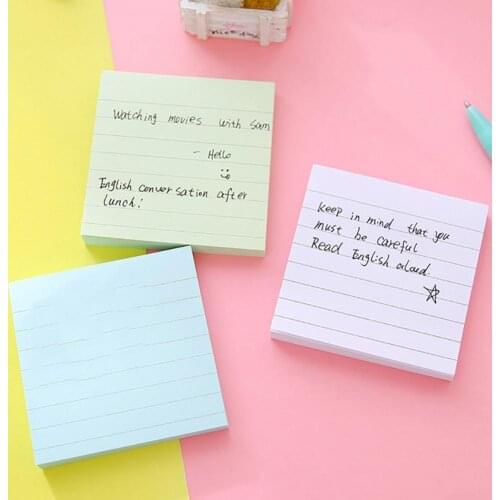 Watching movies with Sam
- Hello
English conversation after
lunch!
Keep in mind that you
must be careful
Read English aloud.